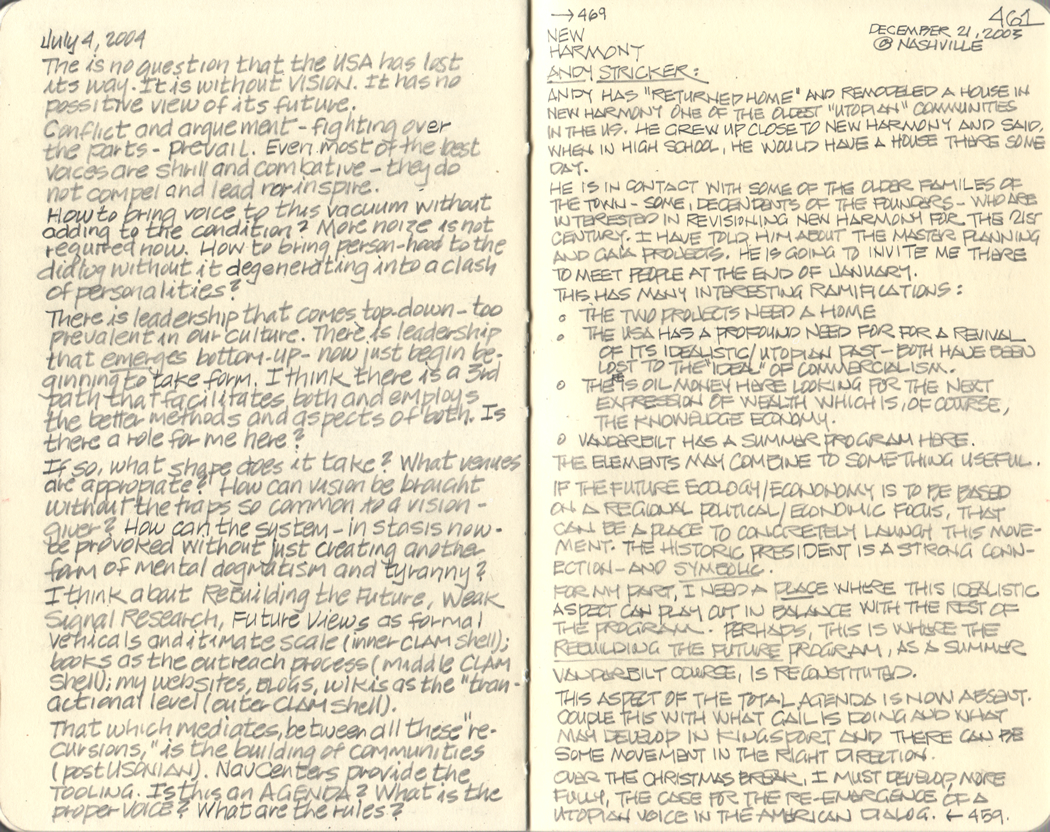 July 4, 2004
The is no question that the USA has lost
its way. It is without VISION. It has no
possitive view of its future.
Conflict and arguement - fighting over
the parts - prevail. Even most of the best
voices are shrill and combative - they do
not compel and lead nor inspire.
How to bring voice to this vacuum without
adding to the condition? More noize is not
required now. How to bring person-hood to the
dialog without it degenerating into a clash
of personalities?
There is leadership that comes top-down - too
prevalent in our culture. There is leadership
that emerges bottom-up - now just begin be-
ginning to take form. I think there is a 3rd
path that facilitates both and employs
the better methods and aspects of both. Is
there a role for me here?
If so, what shape does it take? What venues
are appropiate? How can vision be brought
without the traps so common to a vision -
giver? How can the system - in stasis now -
be provoked without just creating another
form of mental dogmatism and tyranny?
I think about ReBuilding the Future, Weak
Signal Research, Future Views as formal
vehicals and itimate scale (inner CLAM shell);
books as the outreach process (middle CLAM
Shell); my websites, BLOGS, wikis as the "tran-
actional level (outer CLAM shell).
That which mediates, between all these "re-
cursions," is the building of communities
(post USONIAN). NavCenters provide the
TOOLING. Is this an AGENDA? What is the
proper VOICE? What are the rules?
→469
461
NEW
HARMONY
DECEMBER 21, 2003
@ NASHVILLE
ANDY STRICKER:
ANDY HAS "RETURNED HOME" AND REMODELED A HOUSE IN
NEW HARMONY ONE OF THE OLDEST "UTOPIAN" COMMUNITIES
IN THE US. HE GREW UP CLOSE TO NEW HARMONY AND SAID,
WHEN IN HIGH SCHOOL, HE WOULD HAVE A HOUSE THERE SOME
DAY.
HE IS IN CONTACT WITH SOME OF THE OLDER FAMILES OF
THE TOWN - SOME, DECENDENTS OF THE FOUNDERS - WHO ARE
INTERESTED IN REVISIONING NEW HARMONY FOR THE 21ST
CENTURY. I HAVE TOLD HIM ABOUT THE MASTER PLANNING
AND GAIA PROJECTS. HE IS GOING TO INVITE ME THERE
TO MEET PEOPLE AT THE END OF JANUARY.
THIS HAS MANY INTERESTING RAMIFICATIONS:
o THE TWO PROJECTS NEED A HOME
o THE USA HAS A PROFOUND NEED FOR FOR A REVIVAL
OF ITS IDEALISTIC/UTOPIAN PAST - BOTH HAVE BEEN
LOST TO THE "IDEAL" OF COMMERCIALISM.
o THE IS OIL MONEY HERE LOOKING FOR THE NEXT
EXPRESSION OF WEALTH WHICH IS, OF COURSE,
THE KNOWLEDGE ECONOMY.
o VANDERBILT HAS A SUMMER PROGRAM HERE.
THE ELEMENTS MAY COMBINE TO SOMETHING USEFUL.
IF THE FUTURE ECOLOGY/ECONONOMY IS TO BE BASED
ON A REGIONAL POLITICAL/ECONOMIC FOCUS, THAT
CAN BE A PLACE TO CONCRETELY LAUNCH THIS MOVE-
MENT. THE HISTORIC PRESIDENT IS A STRONG CONN-
ECTION - AND SYMBOLIC.
FOR MY PART, I NEED A PLACE WHERE THIS IDEALISTIC
ASPECT CAN PLAY OUT IN BALANCE WITH THE REST OF
THE PROGRAM. PERHAPS, THIS IS WHERE THE
REBUILDING THE FUTURE PROGRAM, AS A SUMMER
VANDERBILT COURSE, IS RECONSTITUTED.
THIS ASPECT OF THE TOTAL AGENDA IS NOW ABSENT.
COUPLE THIS WITH WHAT GAIL IS DOING AND WHAT
MAY DEVELOP IN KINGSPORT AND THERE CAN BE
SOME MOVEMENT IN THE RIGHT DIRECTION.
OVER THE CHRISTMAS BREAK, I MUST DEVELOP, MORE
FULLY, THE CASE FOR THE RE-EMERGENCE OF A
UTOPIAN VOICE IN THE AMERICAN DIALOG. ←459.